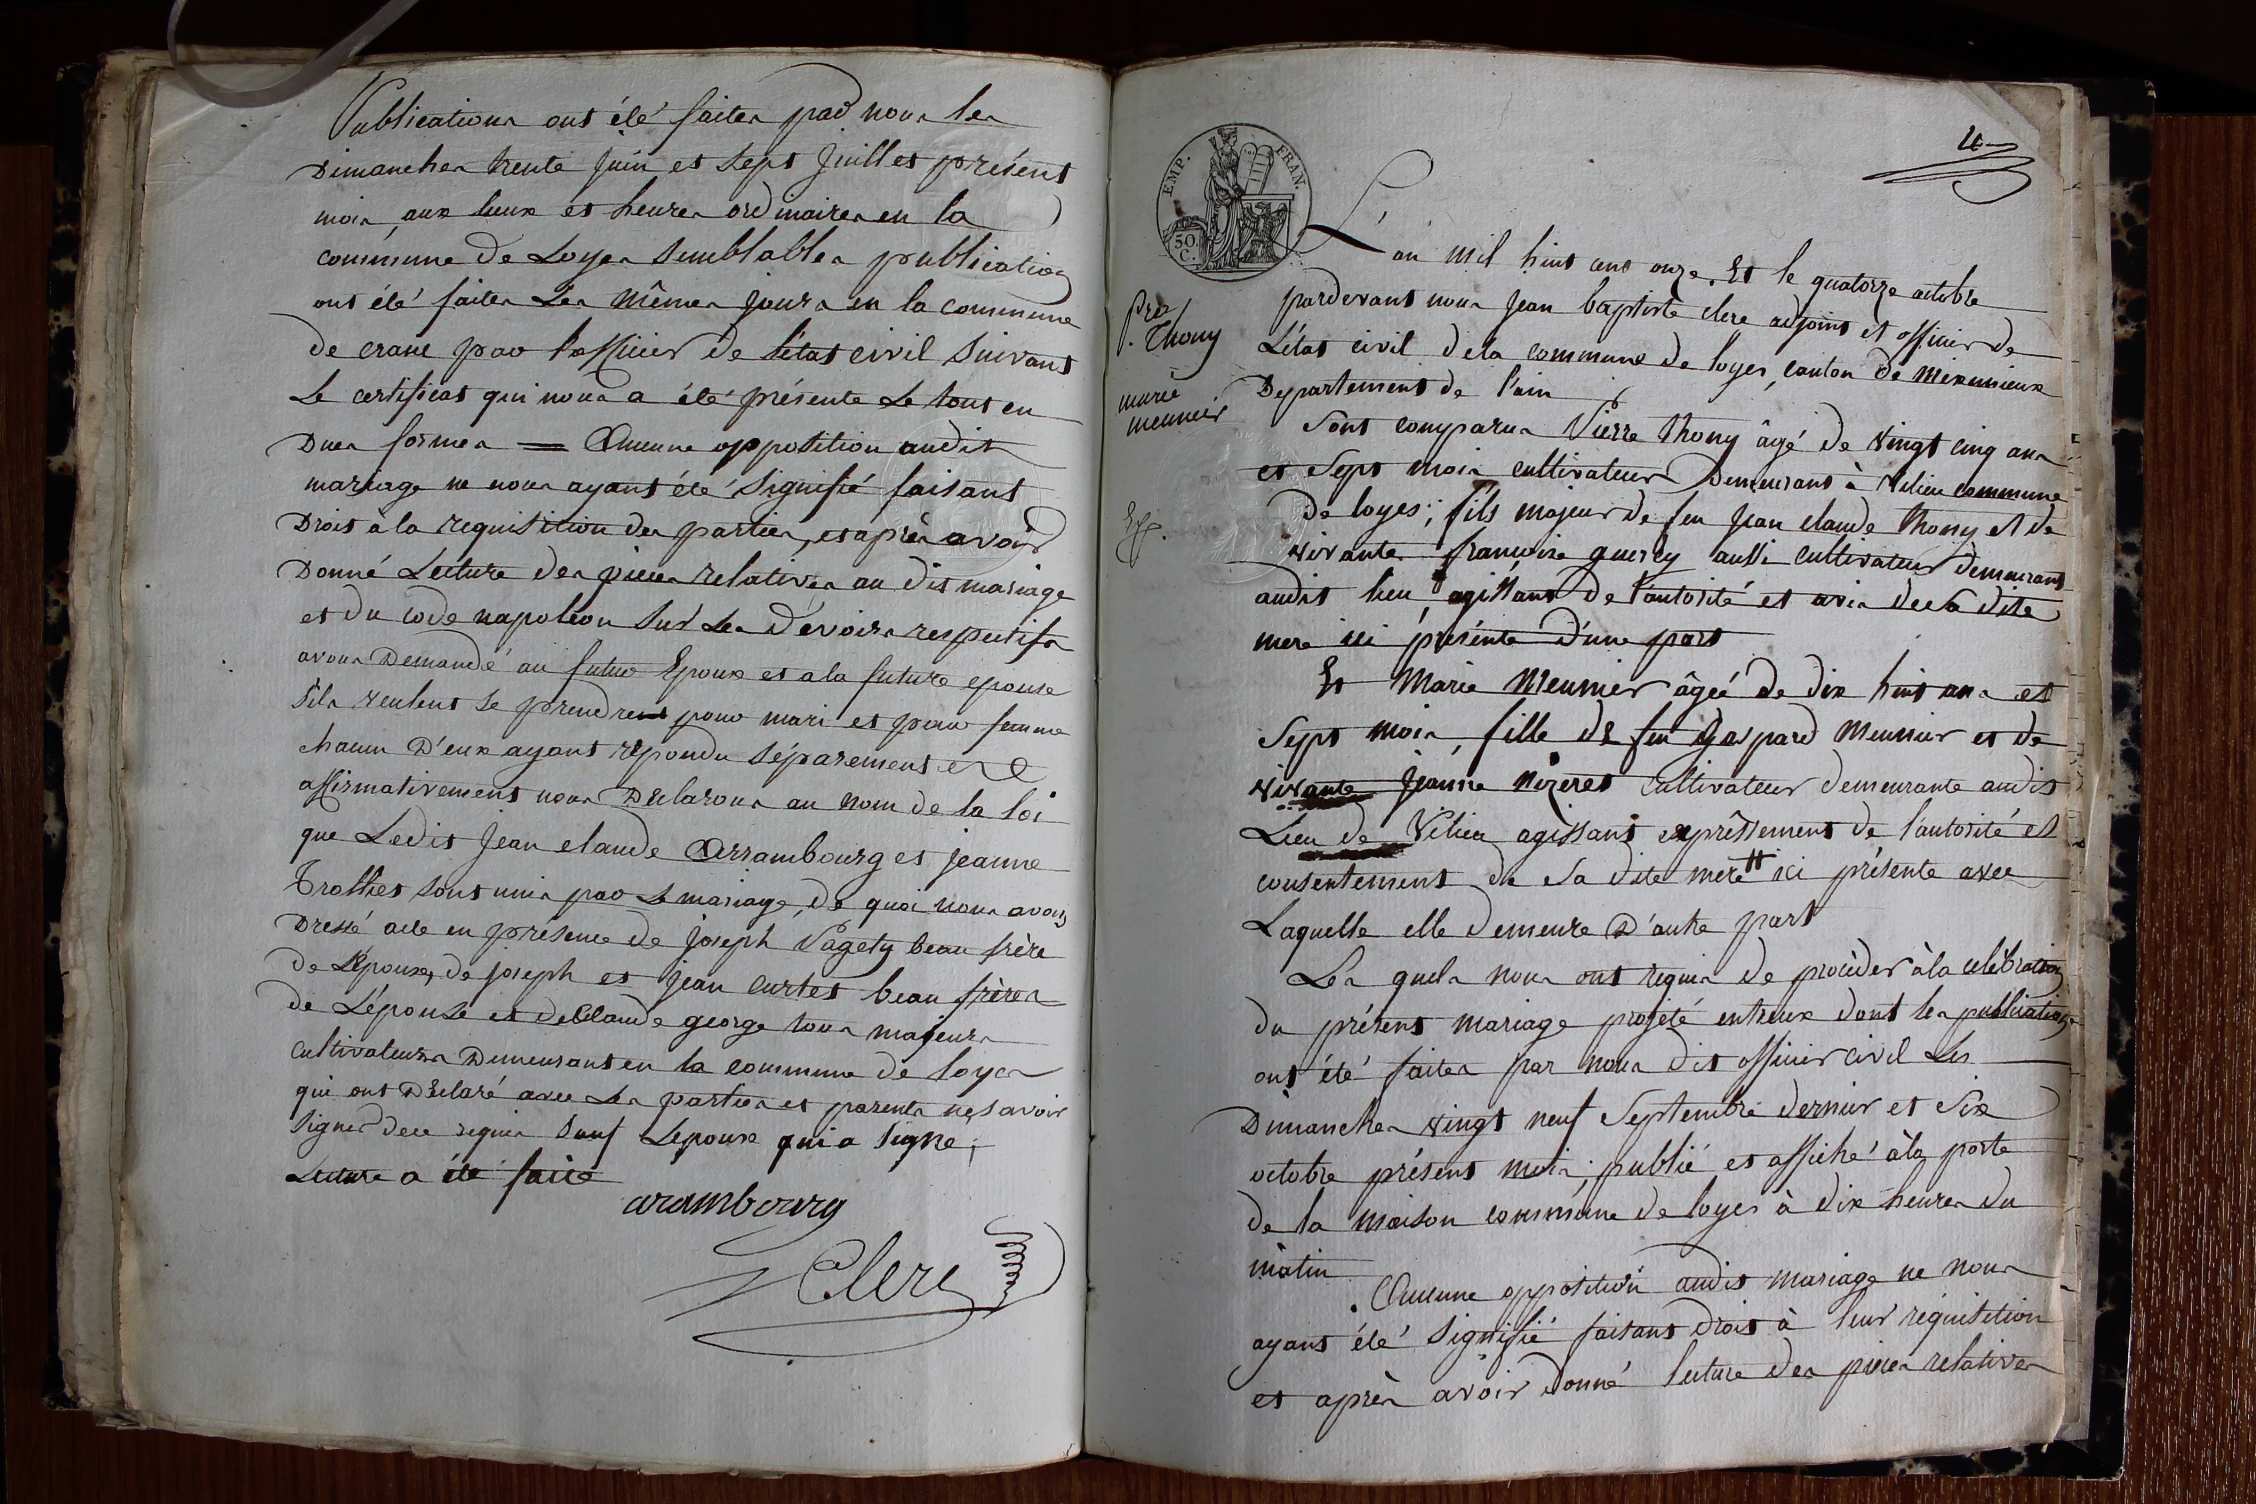 Publications ont été faites par nous les
Dimanches trente juin et sept juillet présent
mois, aux lieux et heures ordinaires en la
commune de Loyes semblables publications
ont été faites Les Mêmes jours en la commune
de crane par l'officier de l'état civil suivant
Le certificat qui nous a été présenté Le tout en
Dues formes = Aucune opposition audit
mariage ne nous ayant été signifié faisant
Droit à la requisition des parties, et après avoir
Donné Lecture des pieces relatives au dit mariage
et du code napoleon sur Les Devoirs respectifs
avons Demandé au futur Epoux et a la future epouse
s'ils veulent se prendre pour mari et pour femme
chacun D'eux ayant repondu séparement et
affirmativement nous Déclarons au nom de la loi
que Ledit Jean claude Arrambourg et jeanne
Trolliet sont unis par Le mariage, de quoi nous avons
Dressé acte en présence de joseph Pagety beau frère
de L'époux, de joseph et jean Curtet beau frères
de L'épouse et de Claude george tous majeurs
Cultivateurs Demeurant en la commune de loyes
qui ont Déclaré avec Les parties et parents ne savoir
signer de ce requis sauf Lepoux qui a signé,
Lecture a été faite
arambourg
Clerc
EMP. FRAN.
50 C.
L'an mil huit cent onze. Et le quatorze octobre
pardevant nous Jean baptiste clerc adjoint et officier de
L'état civil de la commune de loyes, canton de Meximieux
Departement de l'ain
Pre
Thony
marie
meunier
Sont comparus Pierre thony âgé de vingt cinq ans
et sept mois cultivateur Demeurant à Vilieu commune
de loyes; fils majeur de feu Jean claude thony et de
vivante françoise guercy aussi cultivateur demeurant
audit lieu, agissant de l'autorité et avis de sa dite
mere ici présente d'une part
Et Marie Meunier âgée de dix huit ans et
Sept mois, fille de feu gaspard Meunier et de
vivante Jeanne Nizeret Cultivateur demeurante audit
Lieu de Vilieu agissant expressement de l'autorité et
consentement de sa dite mere ici présente avec
Laquelle elle demeure D'autre part
Les quels nous ont requis de procéder à la celebration
du présent mariage projeté entreux dont les publications
ont été faites par nous dit officier civil Les
Dimanches vingt neuf Septembre dernier et Six
octobre présent mois, publié et affiché à la porte
de la maison commune de loyes à dix heures du
matin
Aucune opposition audit mariage ne nous
ayant été signifié faisant droit à leur réquisition
et après avoir donné lecture des pieces relatives